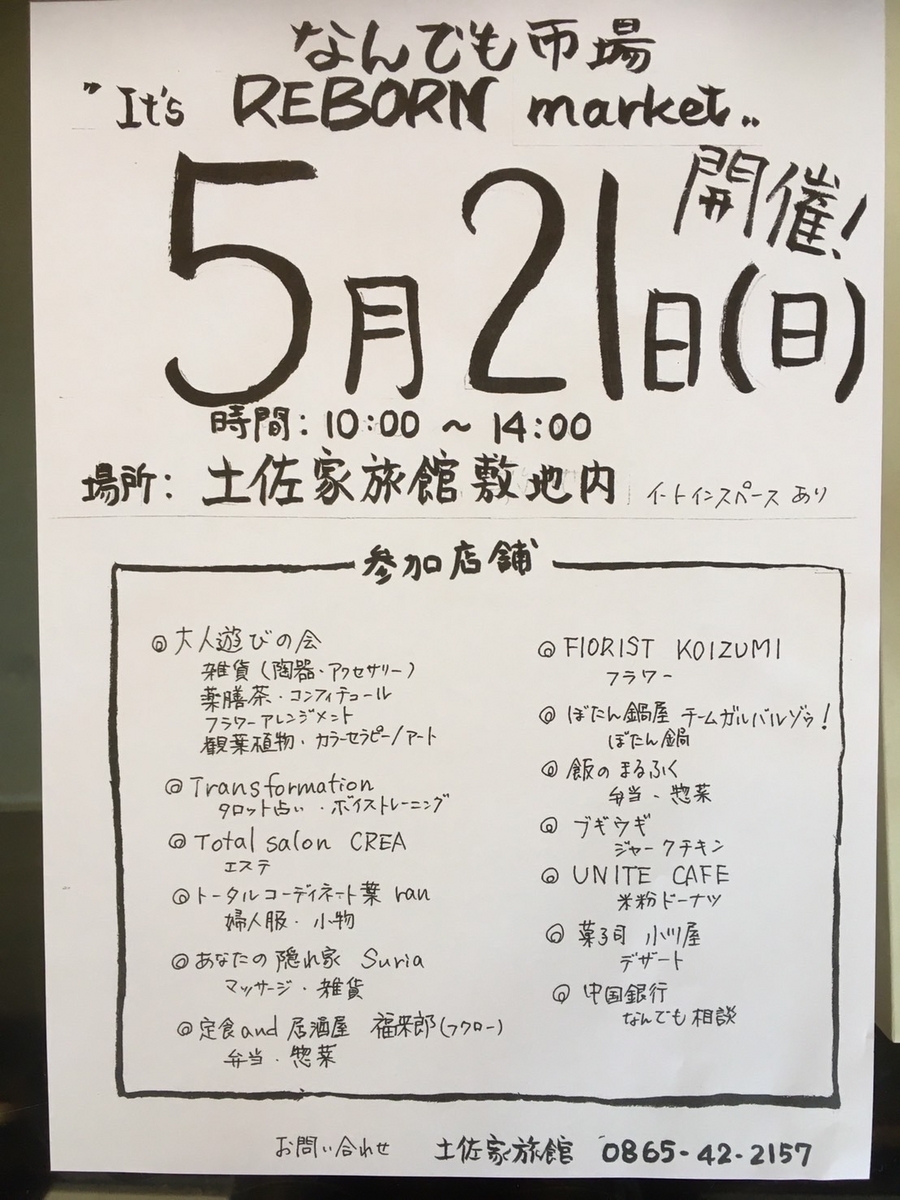 なんでも市場
"It's REBORN market"
5月21日(日)
開催!
時間: 10:00 ~ 14:00
場所: 土佐家旅館敷地内 イートインスペースあり
参加店舗
◎大人遊びの会
雑貨(陶器・アクセサリー)
薬膳茶・コンフィチュール
フラワーアレンジメント
観葉植物・カラーセラピー/アート
◎Transformation
タロット占い・ボイストレーニング
◎Total salon CREA
エステ
◎トータルコーディネート葉 ran
婦人服・小物
◎あなたの隠れ家 Suria
マッサージ・雑貨
◎定食and居酒屋 福来郎(フクロー)
弁当・惣菜
◎FIORIST KOIZUMI
フラワー
◎ぼたん鍋屋 チームガルバルゾゥ!
ぼたん鍋
◎飯のまるふく
弁当・惣菜
◎ブギウギ
ジャークチキン
◎UNITE CAFE
米粉ドーナツ
◎菓子司 小川屋
デザート
◎中国銀行
なんでも相談
お問い合わせ 土佐家旅館 0865-42-2157